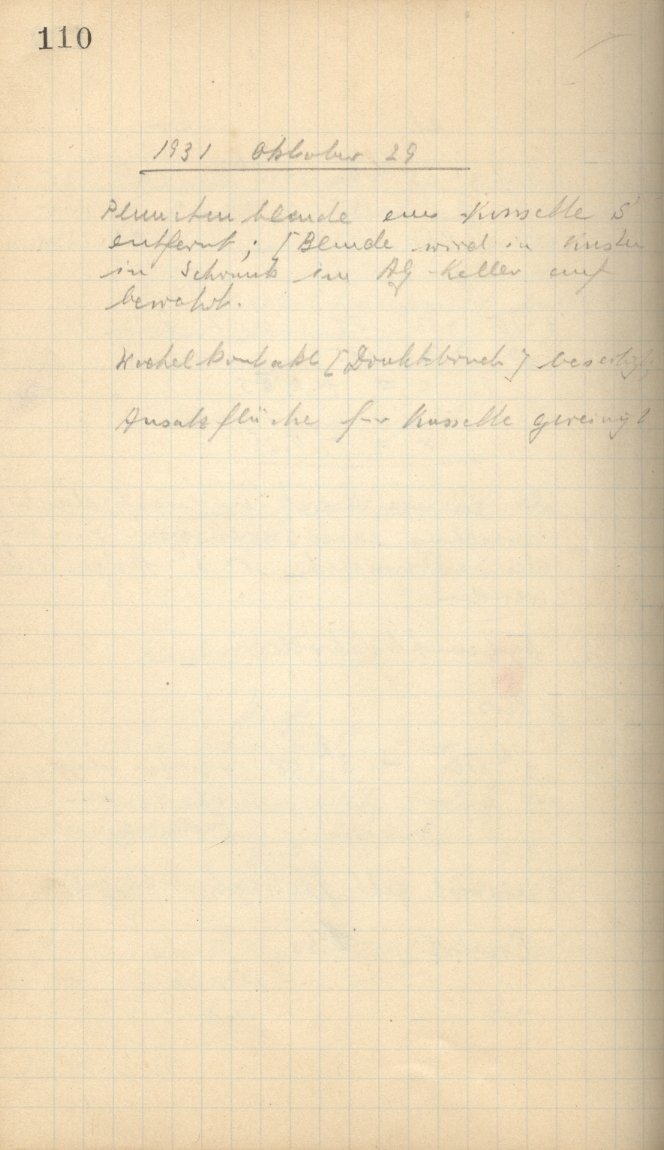 110
1931 Oktober 29
Planetenblende aus Kassette S
entfernt; [Blende wird in Kasten
in Schrank im AG Keller auf
bewahrt.
Wackelkontakt [Drahtbruch] beseitigt
Ansatzfläche für Kassette gereinigt